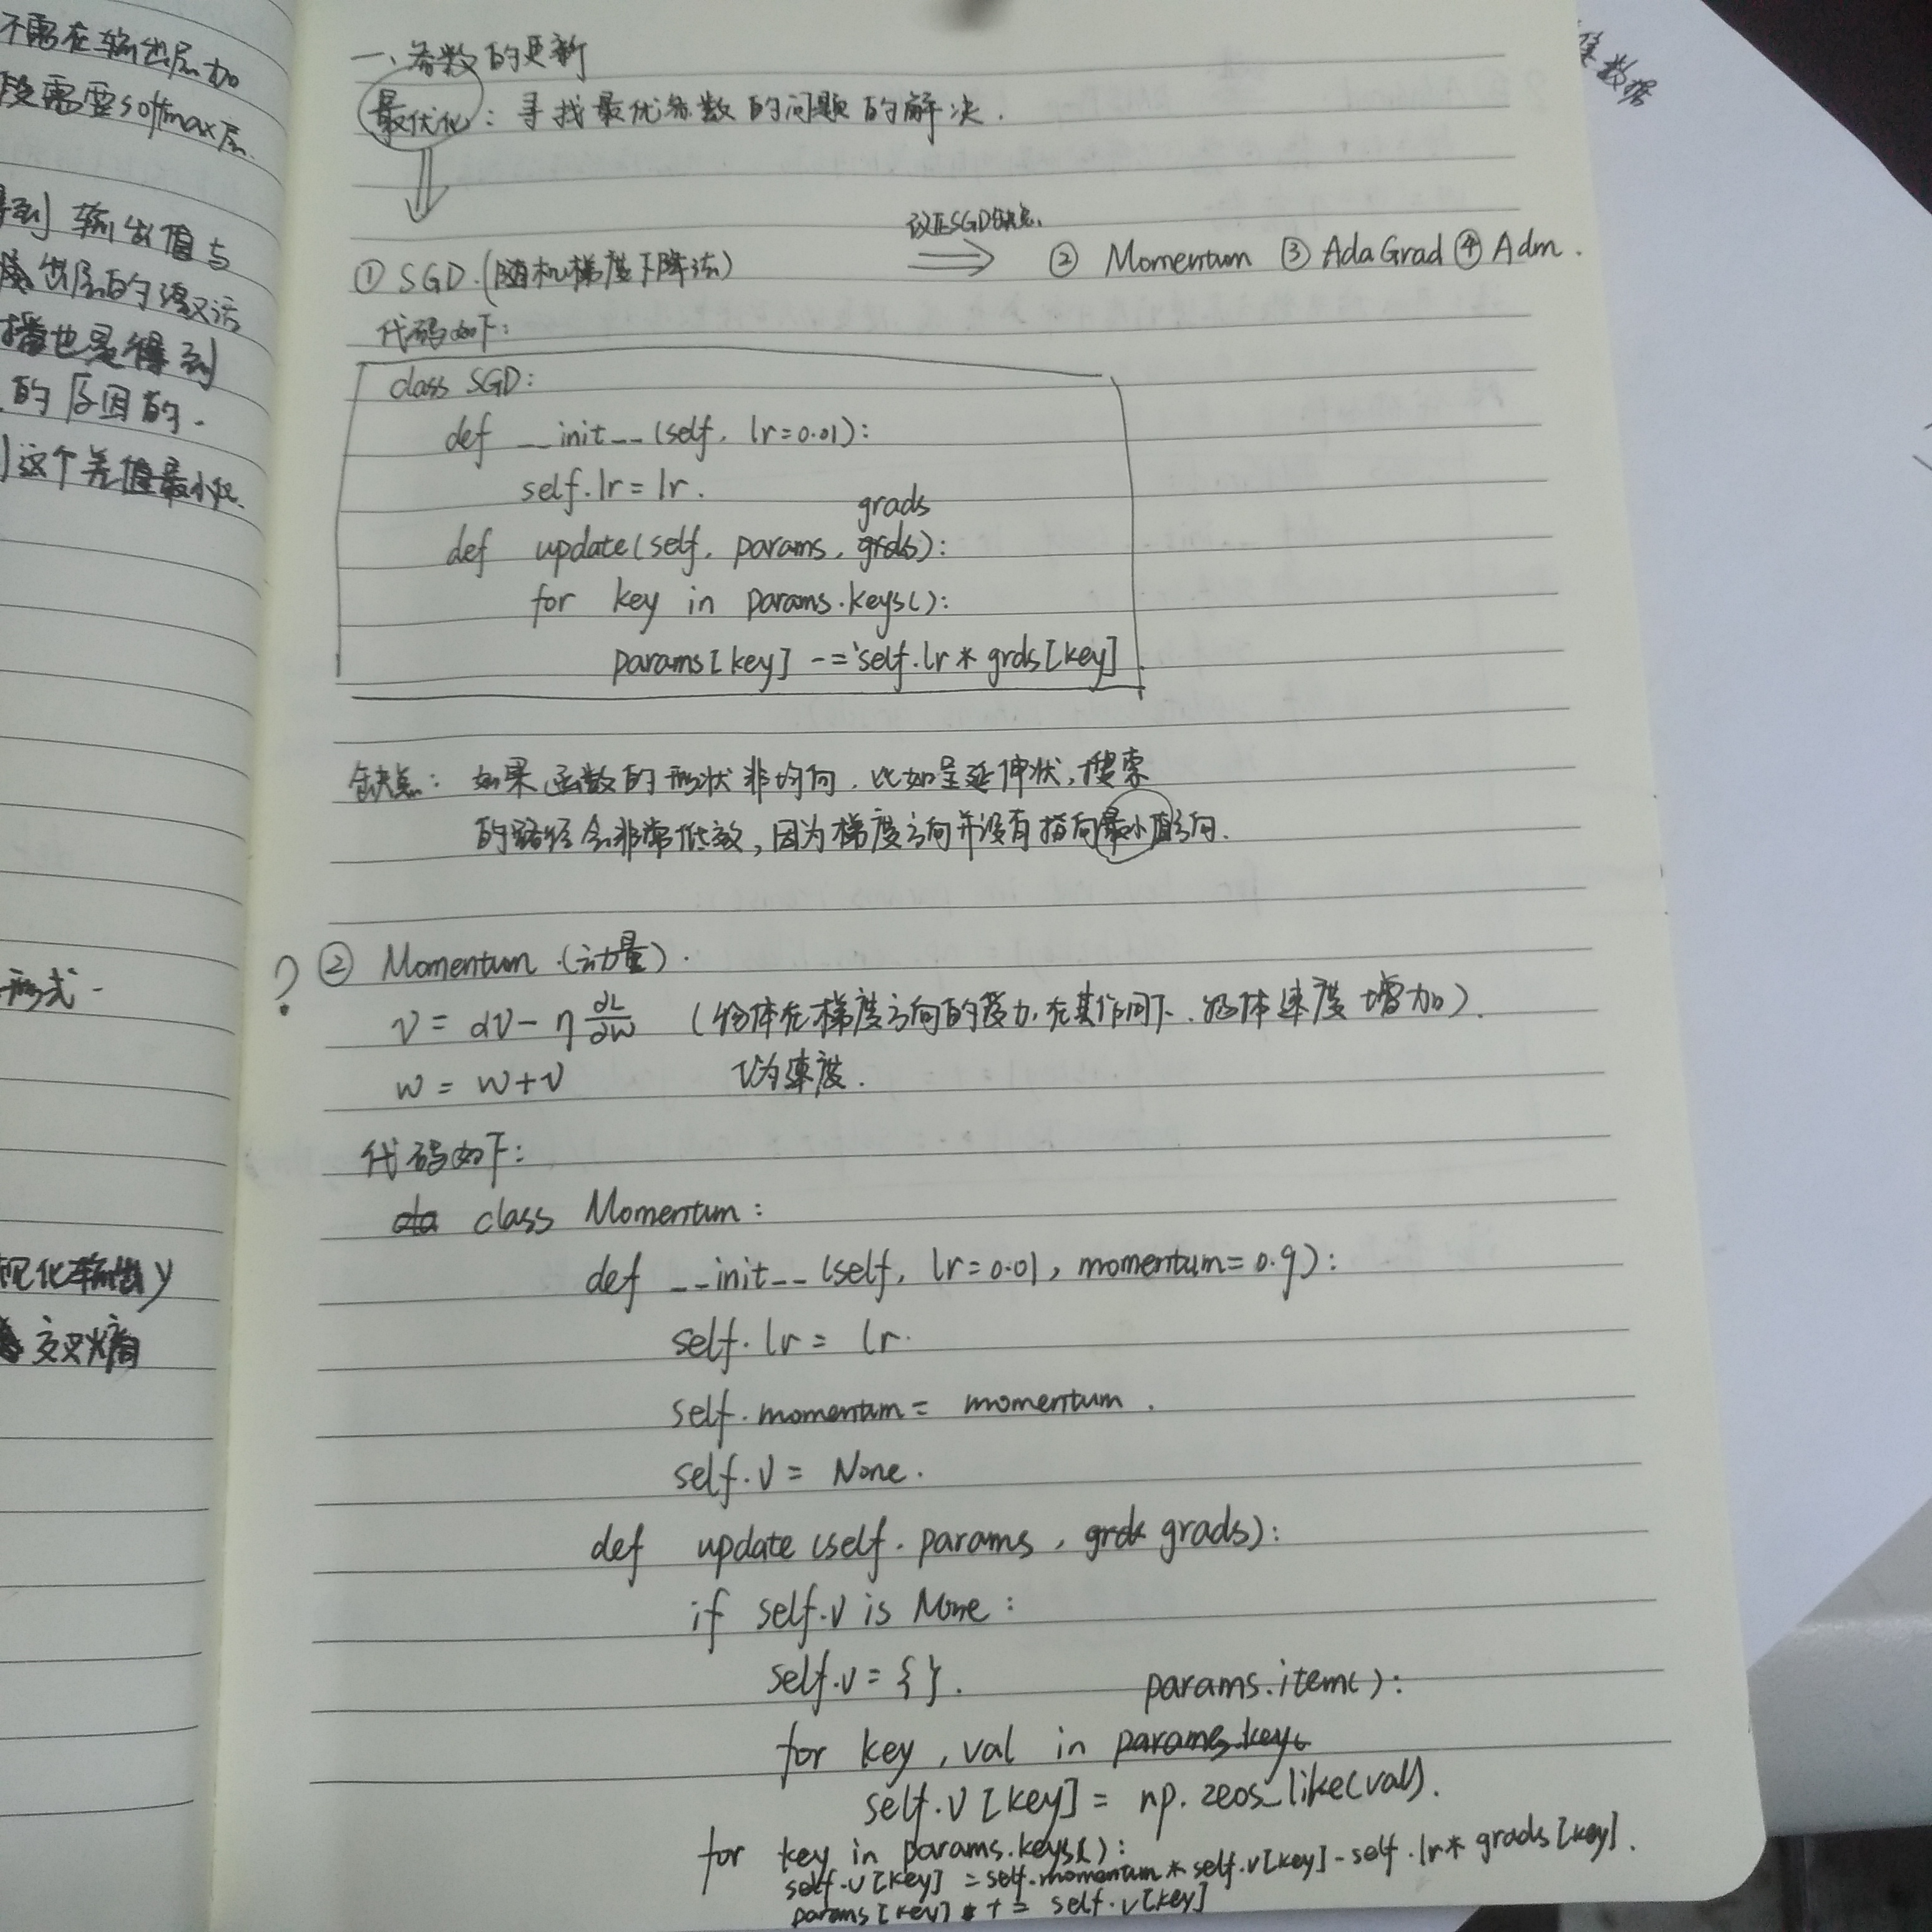 不需在输出层加
段需要softmax层.
得到输出值与
输出层的
播也是得到
的原因的.
这个差值最小化.
形式.
视化输出y
交叉熵
集数据
一、参数的更新
最优化：寻找最优参数的问题的解决.
改正SGD缺点.
① SGD.(随机梯度下降法) ⇒ ② Momentum ③ AdaGrad ④ Adm.
代码如下：
class SGD:
def __init__(self, lr=0.01):
self.lr = lr.
grads
def update(self, params, grds):
for key in params.keys():
params[key] -= self.lr * grds[key]
缺点：如果函数的形状非均向，比如呈延伸状，搜索
的路径会非常低效，因为梯度方向并没有指向最小值方向.
? ② Momentum.(动量).
v = αv - η ∂L/∂w (物体在梯度方向的受力，在其作用下，物体速度增加).
w = w+v v为速度.
代码如下：
class Momentum:
def __init__(self, lr=0.01, momentum=0.9):
self.lr = lr.
self.momentum = momentum.
self.v = None.
def update(self. params, grads):
if self.v is None:
self.v = { }.
params.item():
for key, val in params.key(
self.v[key] = np.zeos_like(val).
for key in params.keys():
self.v[key] = self.momentum * self.v[key] - self.lr * grads[key].
params[key] += self.v[key]